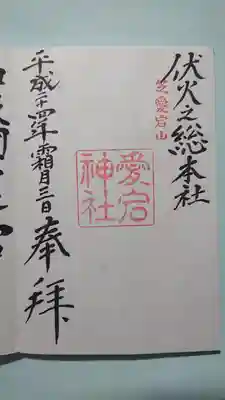 伏火之総本社
芝愛宕山
愛宕神社
平成二十四年霜月三日
奉拝